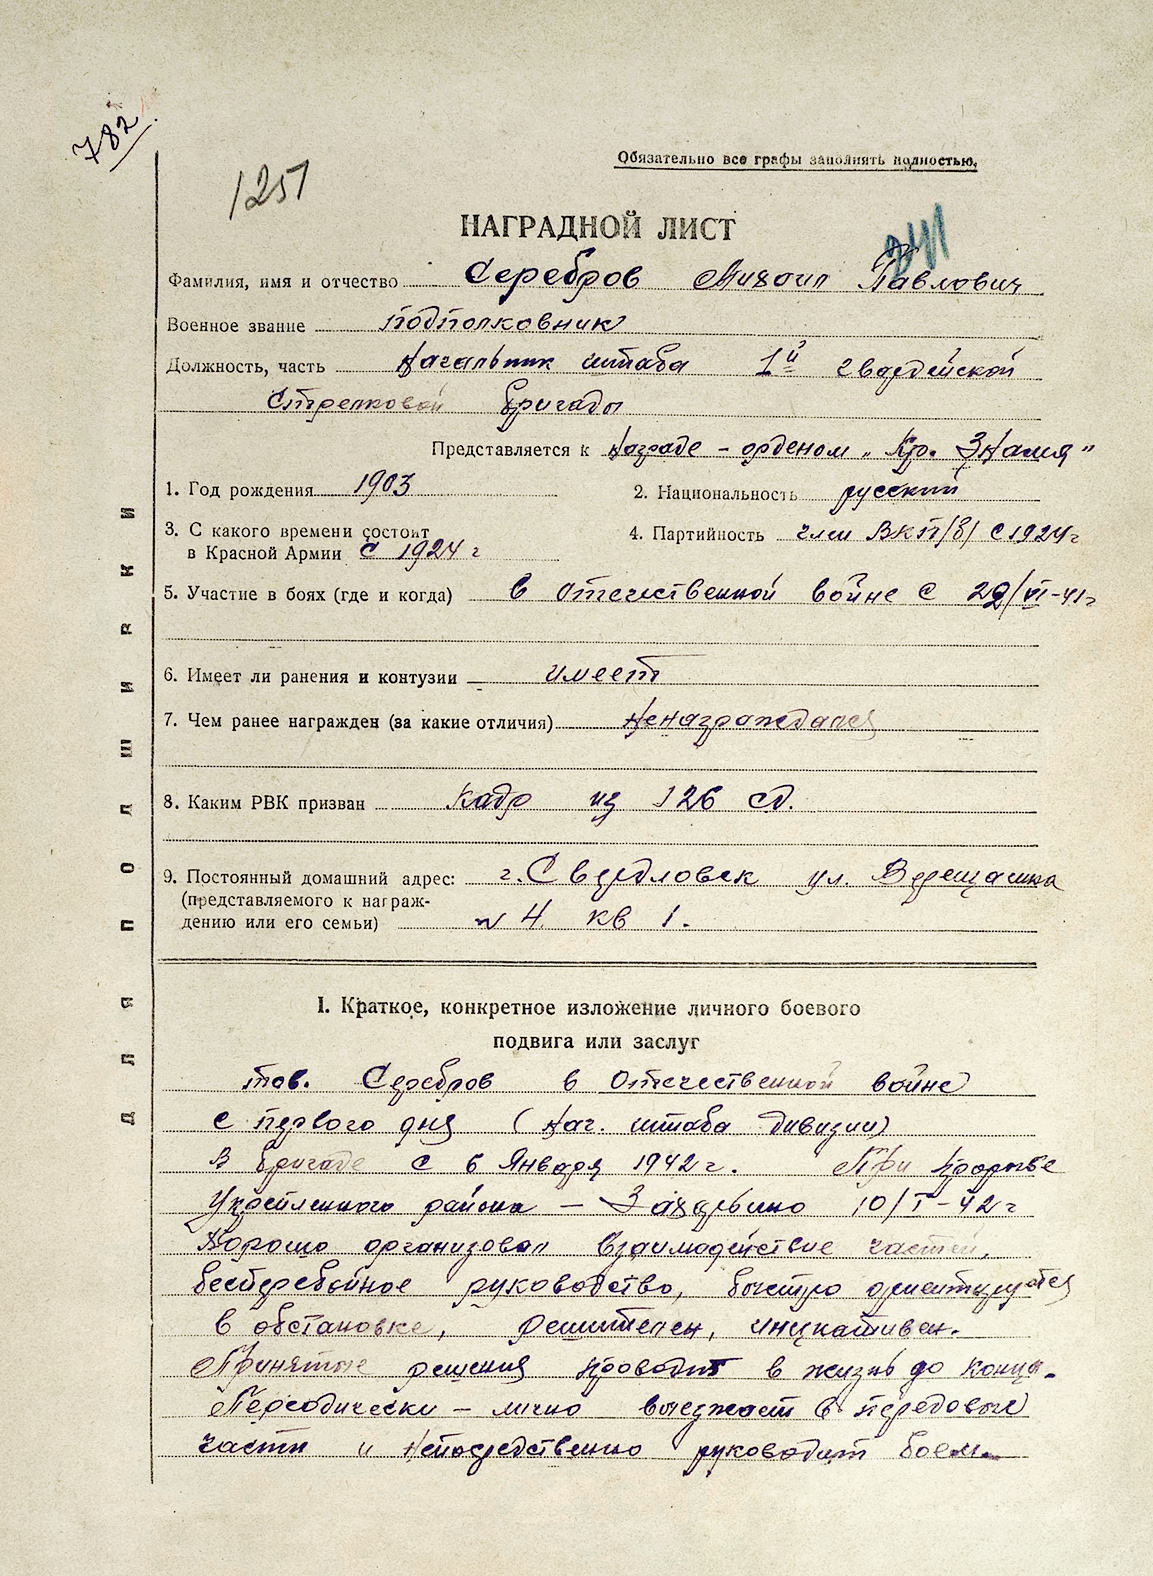 782
1251
Обязательно все графы заполнять полностью.
НАГРАДНОЙ ЛИСТ
Фамилия, имя и отчество Серебров Михаил Павлович
Военное звание подполковник
Должность, часть Начальник штаба 1й гвардейской
Стрелковой бригады
Представляется к награде - орденом „Кр. Знамя"
1. Год рождения 1903 2. Национальность русский
3. С какого времени состоит
в Красной Армии С 1924 г
4. Партийность член ВКП/б/ с 1924 г
5. Участие в боях (где и когда) в Отечественной войне с 22/VI-41 г
6. Имеет ли ранения и контузии имеет
7. Чем ранее награжден (за какие отличия) Ненаграждался
8. Каким РВК призван Кадр из 126 сд.
9. Постоянный домашний адрес: г. Свердловск ул.
(представляемого к награж-
дению или его семьи) № 4 кв 1.
ДЛЯ ПОДШИВКИ
I. Краткое, конкретное изложение личного боевого
подвига или заслуг
тов. Серебров в Отечественной войне
с первого дня (нач. штаба дивизии)
В бригаде с 6 Января 1942 г. При прорыве
Укрепленного района — Захарьино 10/I-42 г
Хорошо организовал взаимодействие частей,
бесперебойное руководство, быстро ориентируется
в обстановке, решителен, инициативен.
Принятые решения проводит в жизнь до конца.
Периодически — лично выезжает в передовые
части и непосредственно руководит боем.